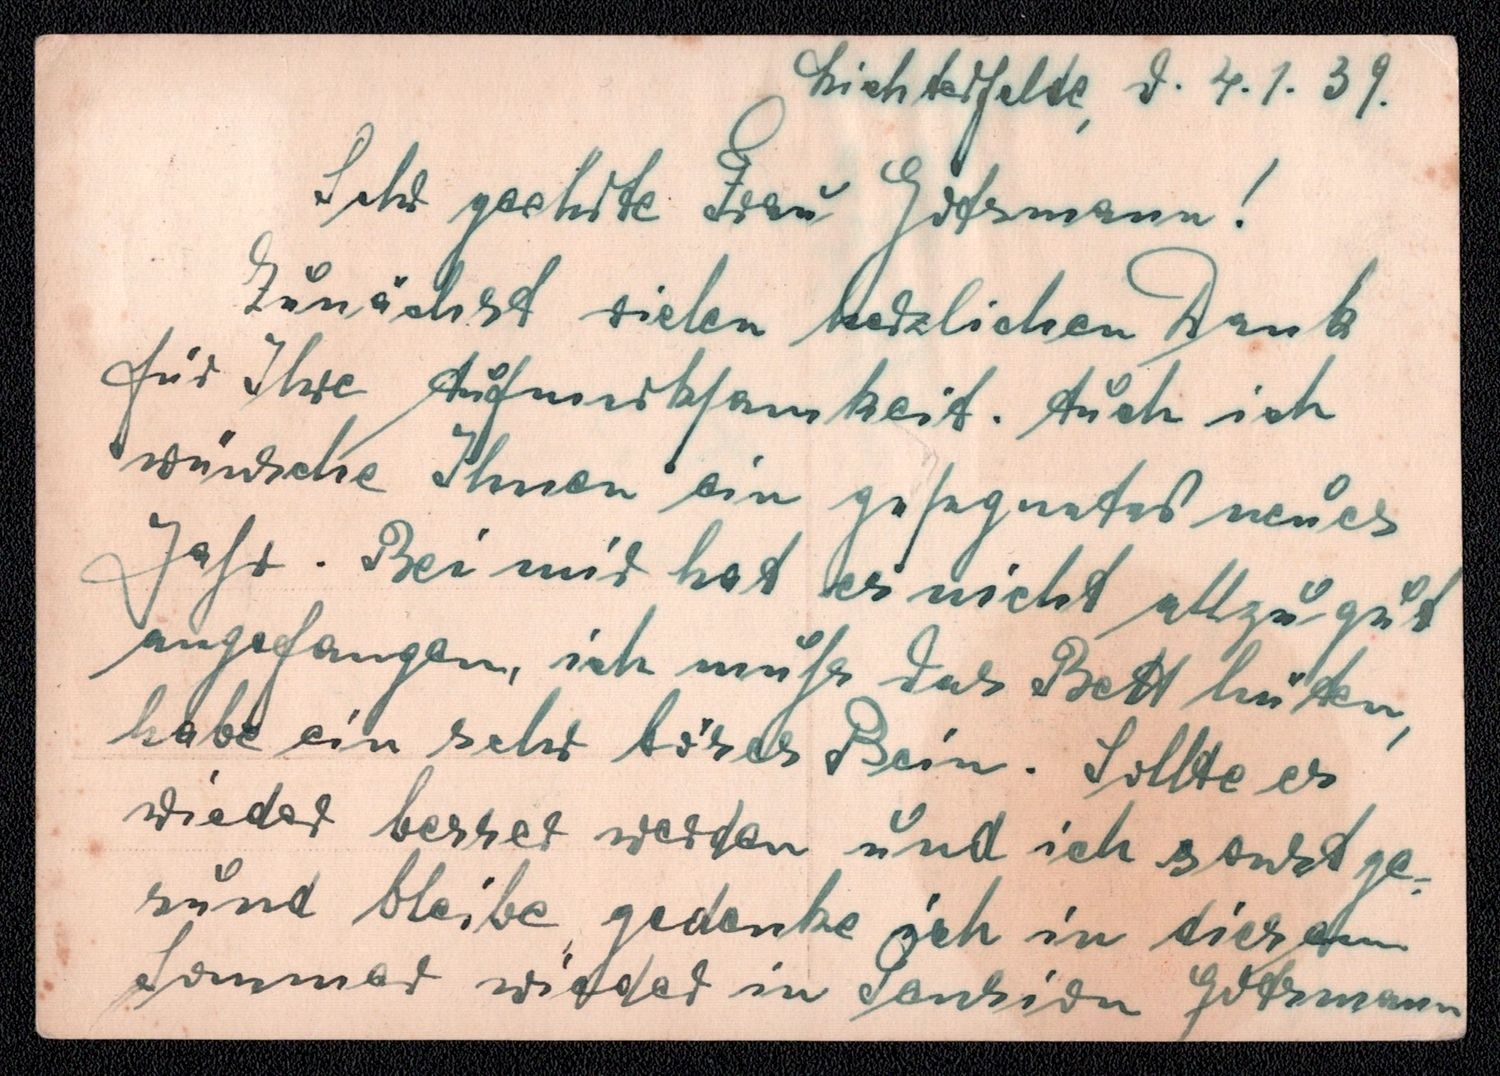 Lichterfelde, d. 4.1.39.
Sehr geehrte Frau Gotsmann!
Zunächst vielen herzlichen Dank
für Ihre Aufmerksamkeit. Auch ich
wünsche Ihnen ein gesegnetes neues
Jahr. Bei mir hat es nicht allzu gut
angefangen, ich muss das Bett hüten,
habe ein sehr böses Bein. Sollte es
wieder besser werden und ich sonst ge-
sund bleibe, gedenke ich in diesem
Sommer wieder in Pension Gotsmann